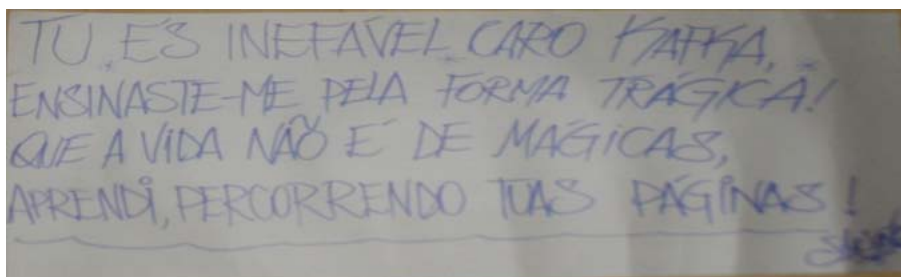 TU ÉS INEFÁVEL CARO KAFKA,
ENSINASTE-ME PELA FORMA TRÁGICA!
QUE A VIDA NÃO É DE MÁGICAS,
APRENDI, PERCORRENDO TUAS PÁGINAS!